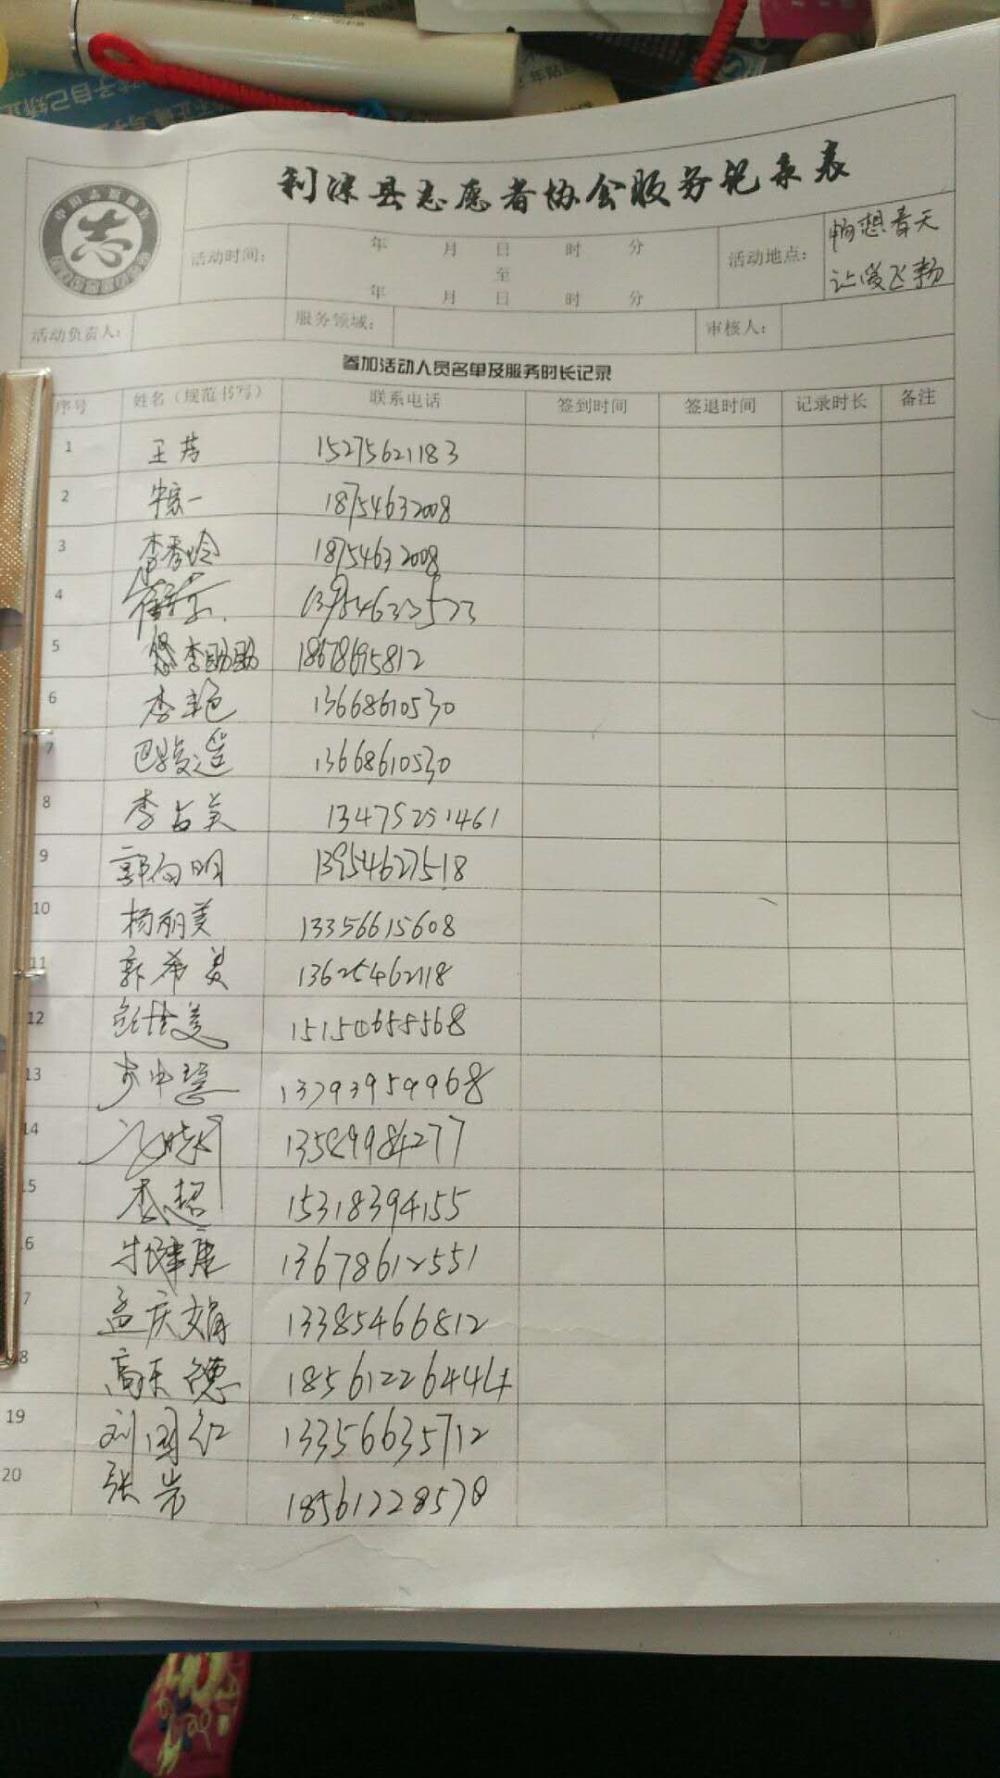 利津县志愿者协会服务记录表
活动时间：
年 月 日 时 分
至
年 月 日 时 分
活动地点：
畅想春天
让爱飞扬
活动负责人：
服务领域：
审核人：
参加活动人员名单及服务时长记录
序号 姓名（规范书写） 联系电话 签到时间 签退时间 记录时长 备注
1 王芳 15275621183
2 18754632008
3 李秀玲 18754632008
4
5 李助助 18678695812
6 李艳 13668610530
7 巴骏遥 13668610530
8 李占美 13475251461
9 郭向明 13954627518
10 杨丽美 13356615608
11 郭希美 13625462118
12 15150655568
13 13793959968
14
15 李超 15318394155
16 牛健康 13678612551
17 孟庆娟 13385466812
18 高天德 18561226444
19 刘国红 13356635712
20 张岩 18561228578